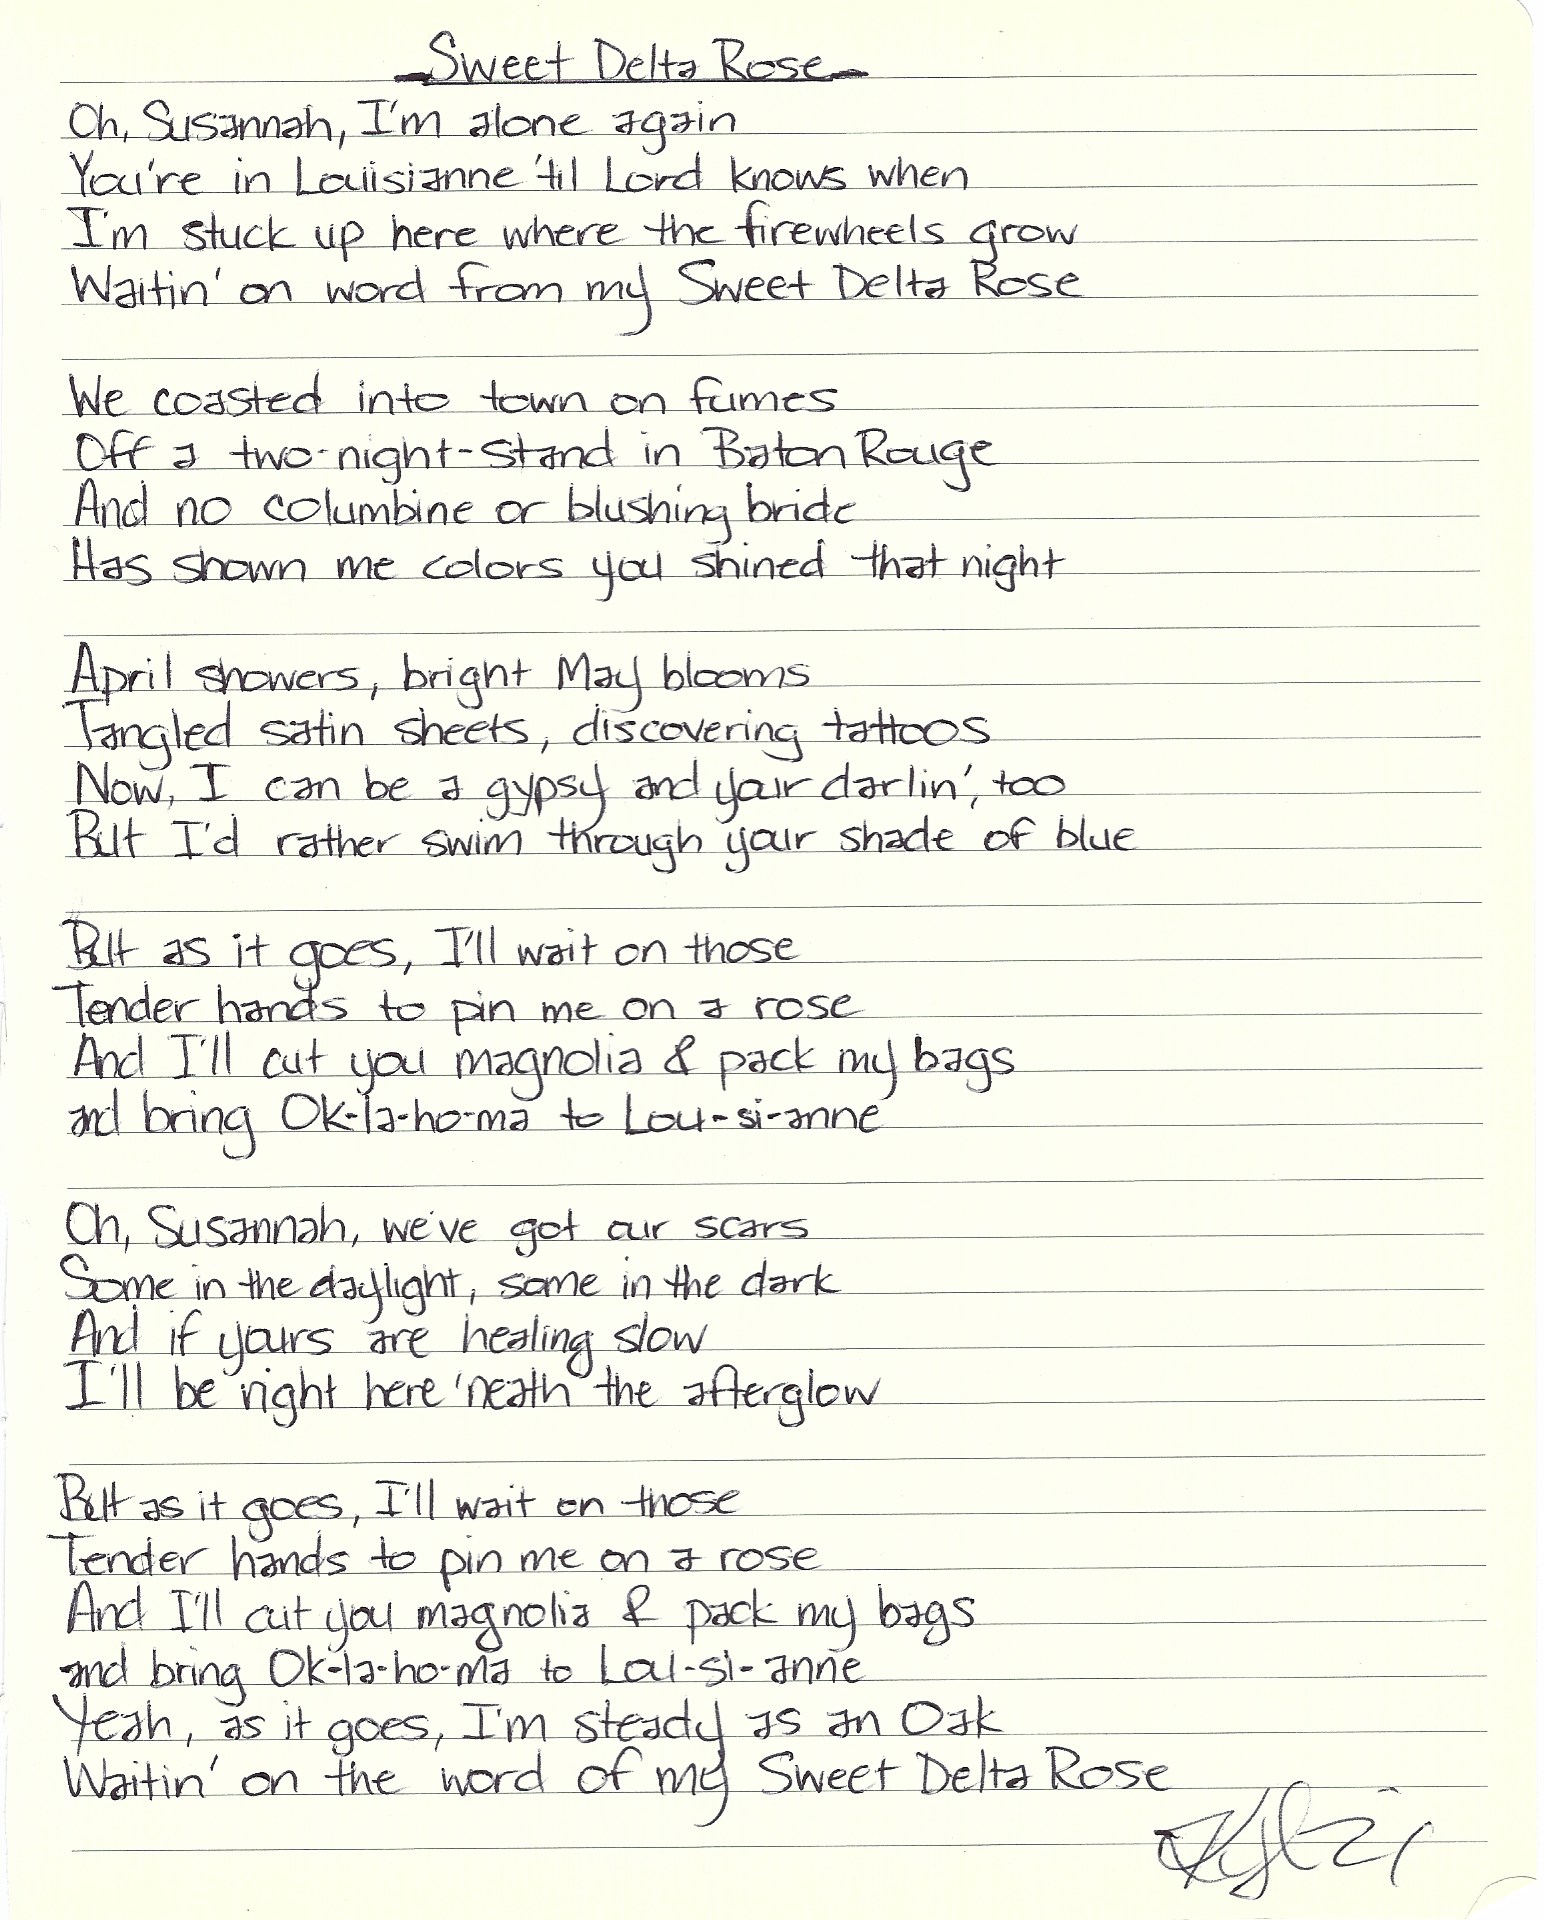 Sweet Delta Rose
Oh, Susannah, I'm alone again
You're in Louisianne 'til Lord knows when
I'm stuck up here where the firewheels grow
Waitin' on word from my Sweet Delta Rose
We coasted into town on fumes
Off a two-night-stand in Baton Rouge
And no columbine or blushing bride
Has shown me colors you shined that night
April showers, bright May blooms
Tangled satin sheets, discovering tattoos
Now, I can be a gypsy and your darlin', too
But I'd rather swim through your shade of blue
But as it goes, I'll wait on those
Tender hands to pin me on a rose
And I'll cut you magnolia & pack my bags
and bring Ok-la-ho-ma to Lou-si-anne
Oh, Susannah, we've got our scars
Some in the daylight, some in the dark
And if yours are healing slow
I'll be right here 'neath the afterglow
But as it goes, I'll wait on those
Tender hands to pin me on a rose
And I'll cut you magnolia & pack my bags
and bring Ok-la-ho-ma to Lou-si-anne
Yeah, as it goes, I'm steady as an Oak
Waitin' on the word of my Sweet Delta Rose